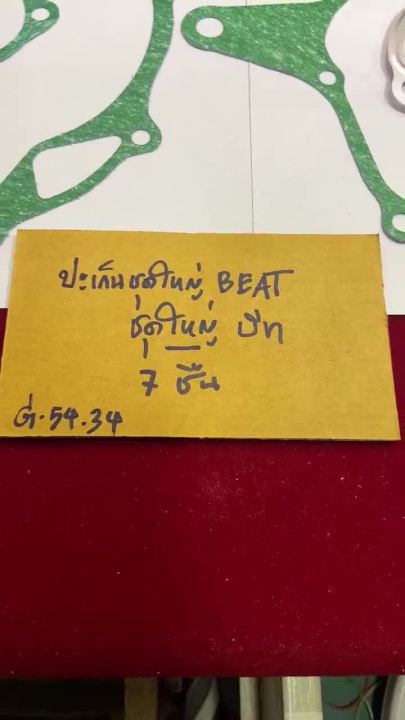 ปะเก็นชุดใหญ่ BEAT
ชุดใหญ่ บีท
7 ชิ้น
ต่.54.34